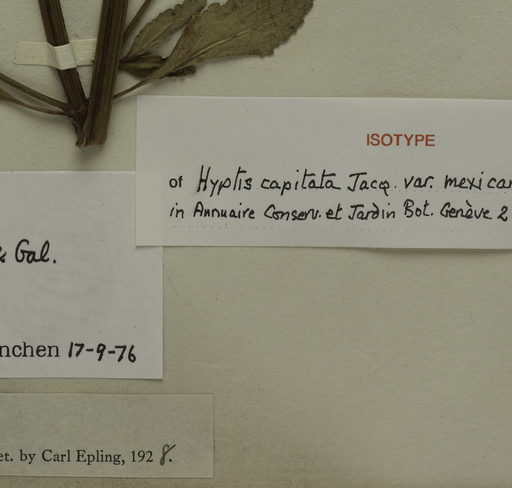 ISOTYPE
of Hyptis capitata Jacq. var. mexican
in Annuaire Conserv. et Jardin Bot. Genève 2
& Gal.
nchen 17-9-76
et. by Carl Epling, 1928.